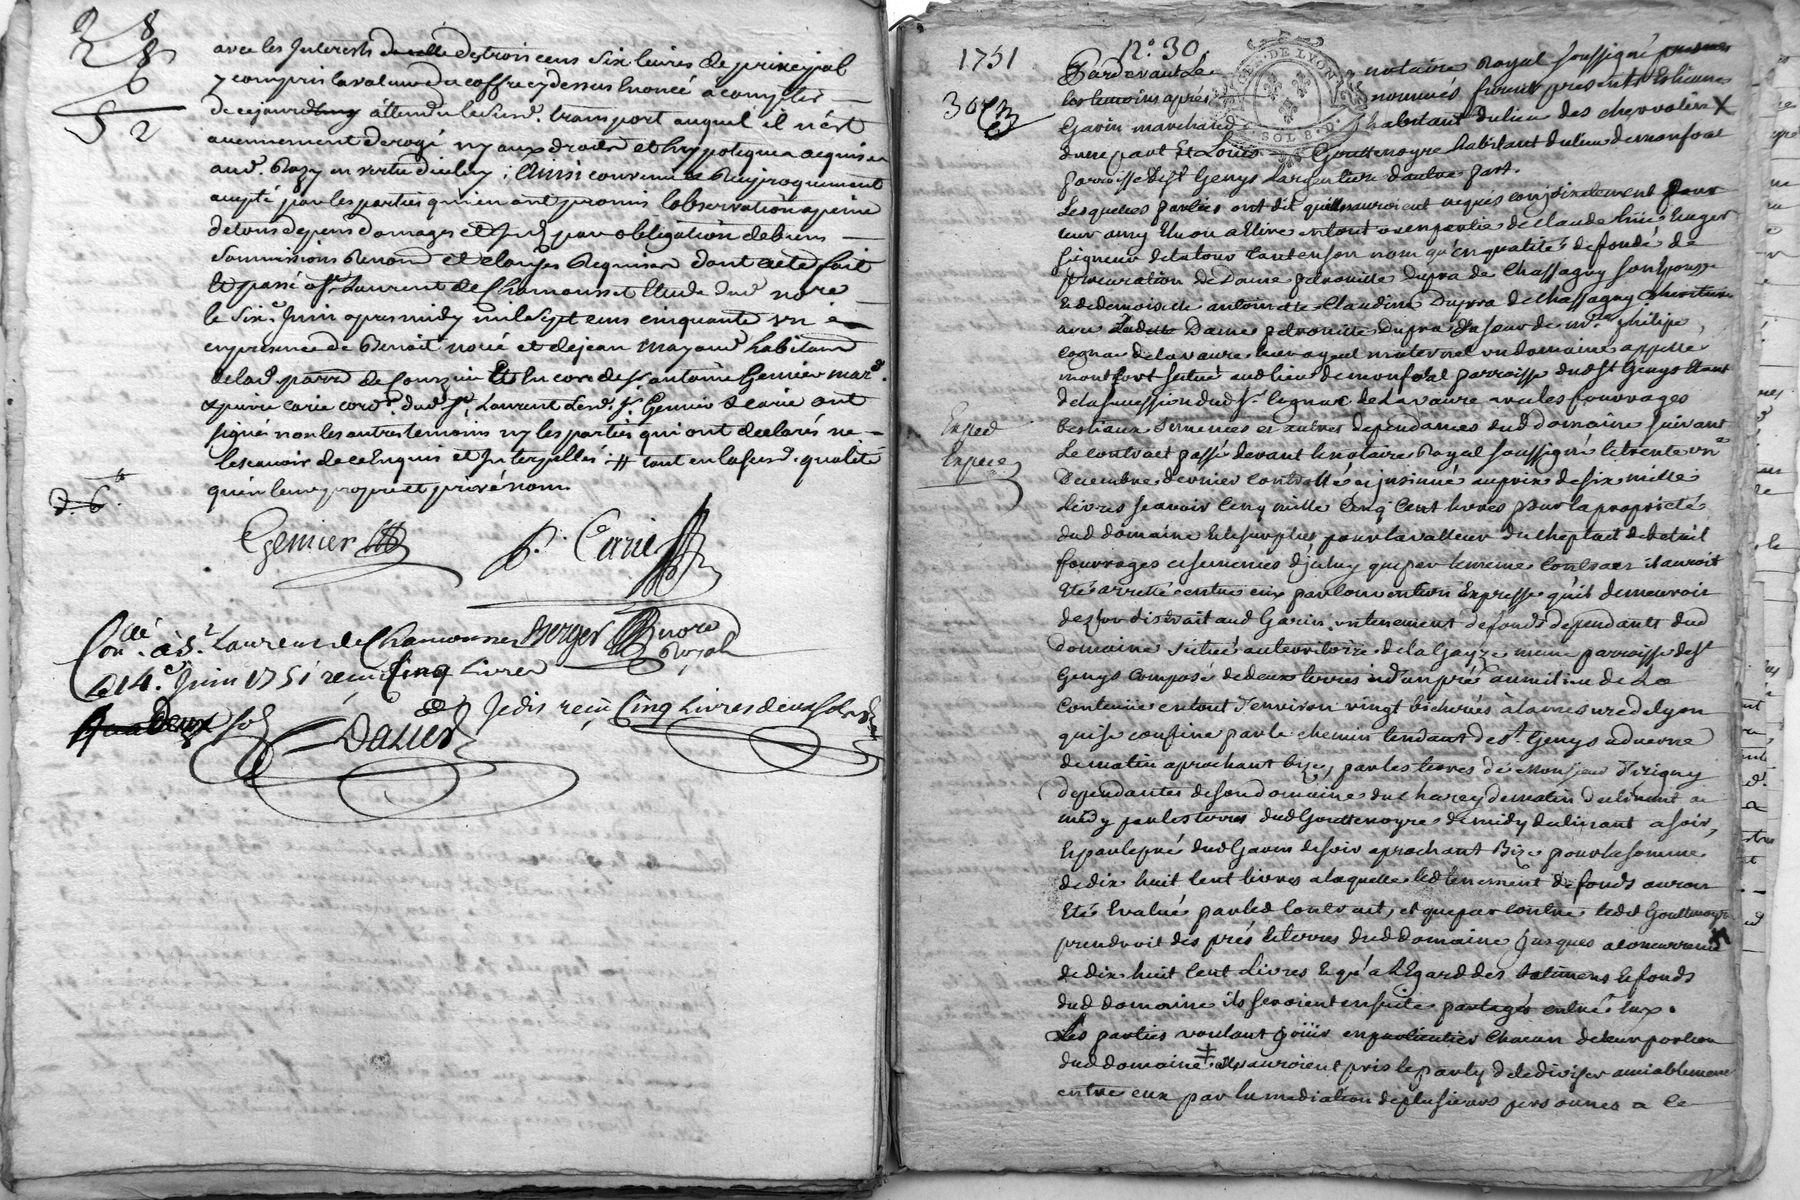 avec les Interests de celle de trois cens Six livres de principal
y compris la valeur du coffre cy dessus Enoncé a compter
de ce jourdhuy attendu le susd. transport auquel il n'est
aucunement derogé ny aux droits et hypoteques acquis
aud. Bazy en vertu d'iceluy ; Ainsi convenu Reciproquement
accepté par les parties qui en ont promis l'observation a peine
de tous depens domages et par obligation de biens
Soumissions Renon. et clauses Requises dont acte fait
et passé a St. Laurent de Chamousset Etude dud. no.re
le Six. Juin apres midy mil sept cens cinquante un
en presence de Benoit et dejean habitans
de lad. parr. de Et Encore de Sr. antoine Gemier mar.d
& pierre Carie cord. dud. St. Laurent lesd. Sr. Gemier & Carie ont
signé non les autres temoins ny les parties qui ont declarés ne
le scavoir de ce Enquis et Interpellés # tant en lad. qualité
qu'en leur propre et privé nom.
Gemier P. Carie
Con.llé a St. Laurent de Chamousset Berger no.re Royal
le 14.e Juin 1751 reçu Cinq Livres
deux sols Je dis reçu Cinq Livres deux sols
Dalier
1751 N.o 30.
30
Pardevant Le notaire Royal soussigné presents
les temoins après nommés furent presents Estienne
Gavin marchand habitant du lieu des chevvalier X
d'une part Et Louis Gouttenoyre habitant du lieu de monforat
parroisse de St. Genys Largentiere d'autre part.
Lesquelles parties ont dit qu'ils auroient acquis conjoinctement pour
leur amy Elu ou a Elire en tout ou en partie de Claude
seigneur de la tour tant en son nom qu'en qualité de fondé de
procuration de Dame petronille Dupra de Chassagny son Epouse
Et de demoiselle antoinette Claudine Dupra de Chassagny
avec Ladette Dame petronille Dupra sa soeur de m.re philipe
Cognac de lavaure leur ayeul maternel un domaine appellé
montfort situé audlieu de monforat parroisse dud St Genys Etant
de la succession dud Sr. Cognac de Lavaure avec les fourrages
bestiaux semences et autres dependances dud Domaine suivant
Exped
Le contract passé devant le notaire Royal soussigné le trente un
Expeé
Decembre dernier controllé et insinué au prix de six mille
Livres scavoir Cinq mille Cinq Cent livres pour la propriété
dud domaine Et le surplus pour la valleur du cheptail de betail
fourrages et semences d'iceluy que par le meme Contract il auroit
Eté arretté entre eux par convention Expresse qu'il demeuroit
aud Gavin un tenement de fonds dependant dud
Domaine situé au territoire de la Gayze meme parroisse de St
Genys Composé de deux terres et d'un pré au milieu de La
Contenüe en tout d'environ vingt bicherées à la mesure de Lyon
qui se confine par le chemin tendant de St. Genys a
de matin aprochant bize, par les terres de Monsieur
dependantes de son domaine du charey de matin declinant a
midy par les terres dud Gouttenoyre de midy declinant a soir,
Et par le pré dud Gavin de soir aprochant Bize pour la somme
de dix huit Cent livres a laquelle led tenement de fonds auroit
Eté Evalué par led Contract, et que par contre ledit Gouttenoyre
prendroit des prés et terres dud Domaine jusques a concurrence
de dix huit Cent Livres Et qu'a l'Egard des batimens et fonds
dud domaine ils seroient ensuite partagés entre Eux.
Les parties voulant joüir en particulier Chacun de leur portion
dud domaine # ils auroient pris le party de le diviser amiablement
entre eux par la mediation de plusieurs personnes a ce